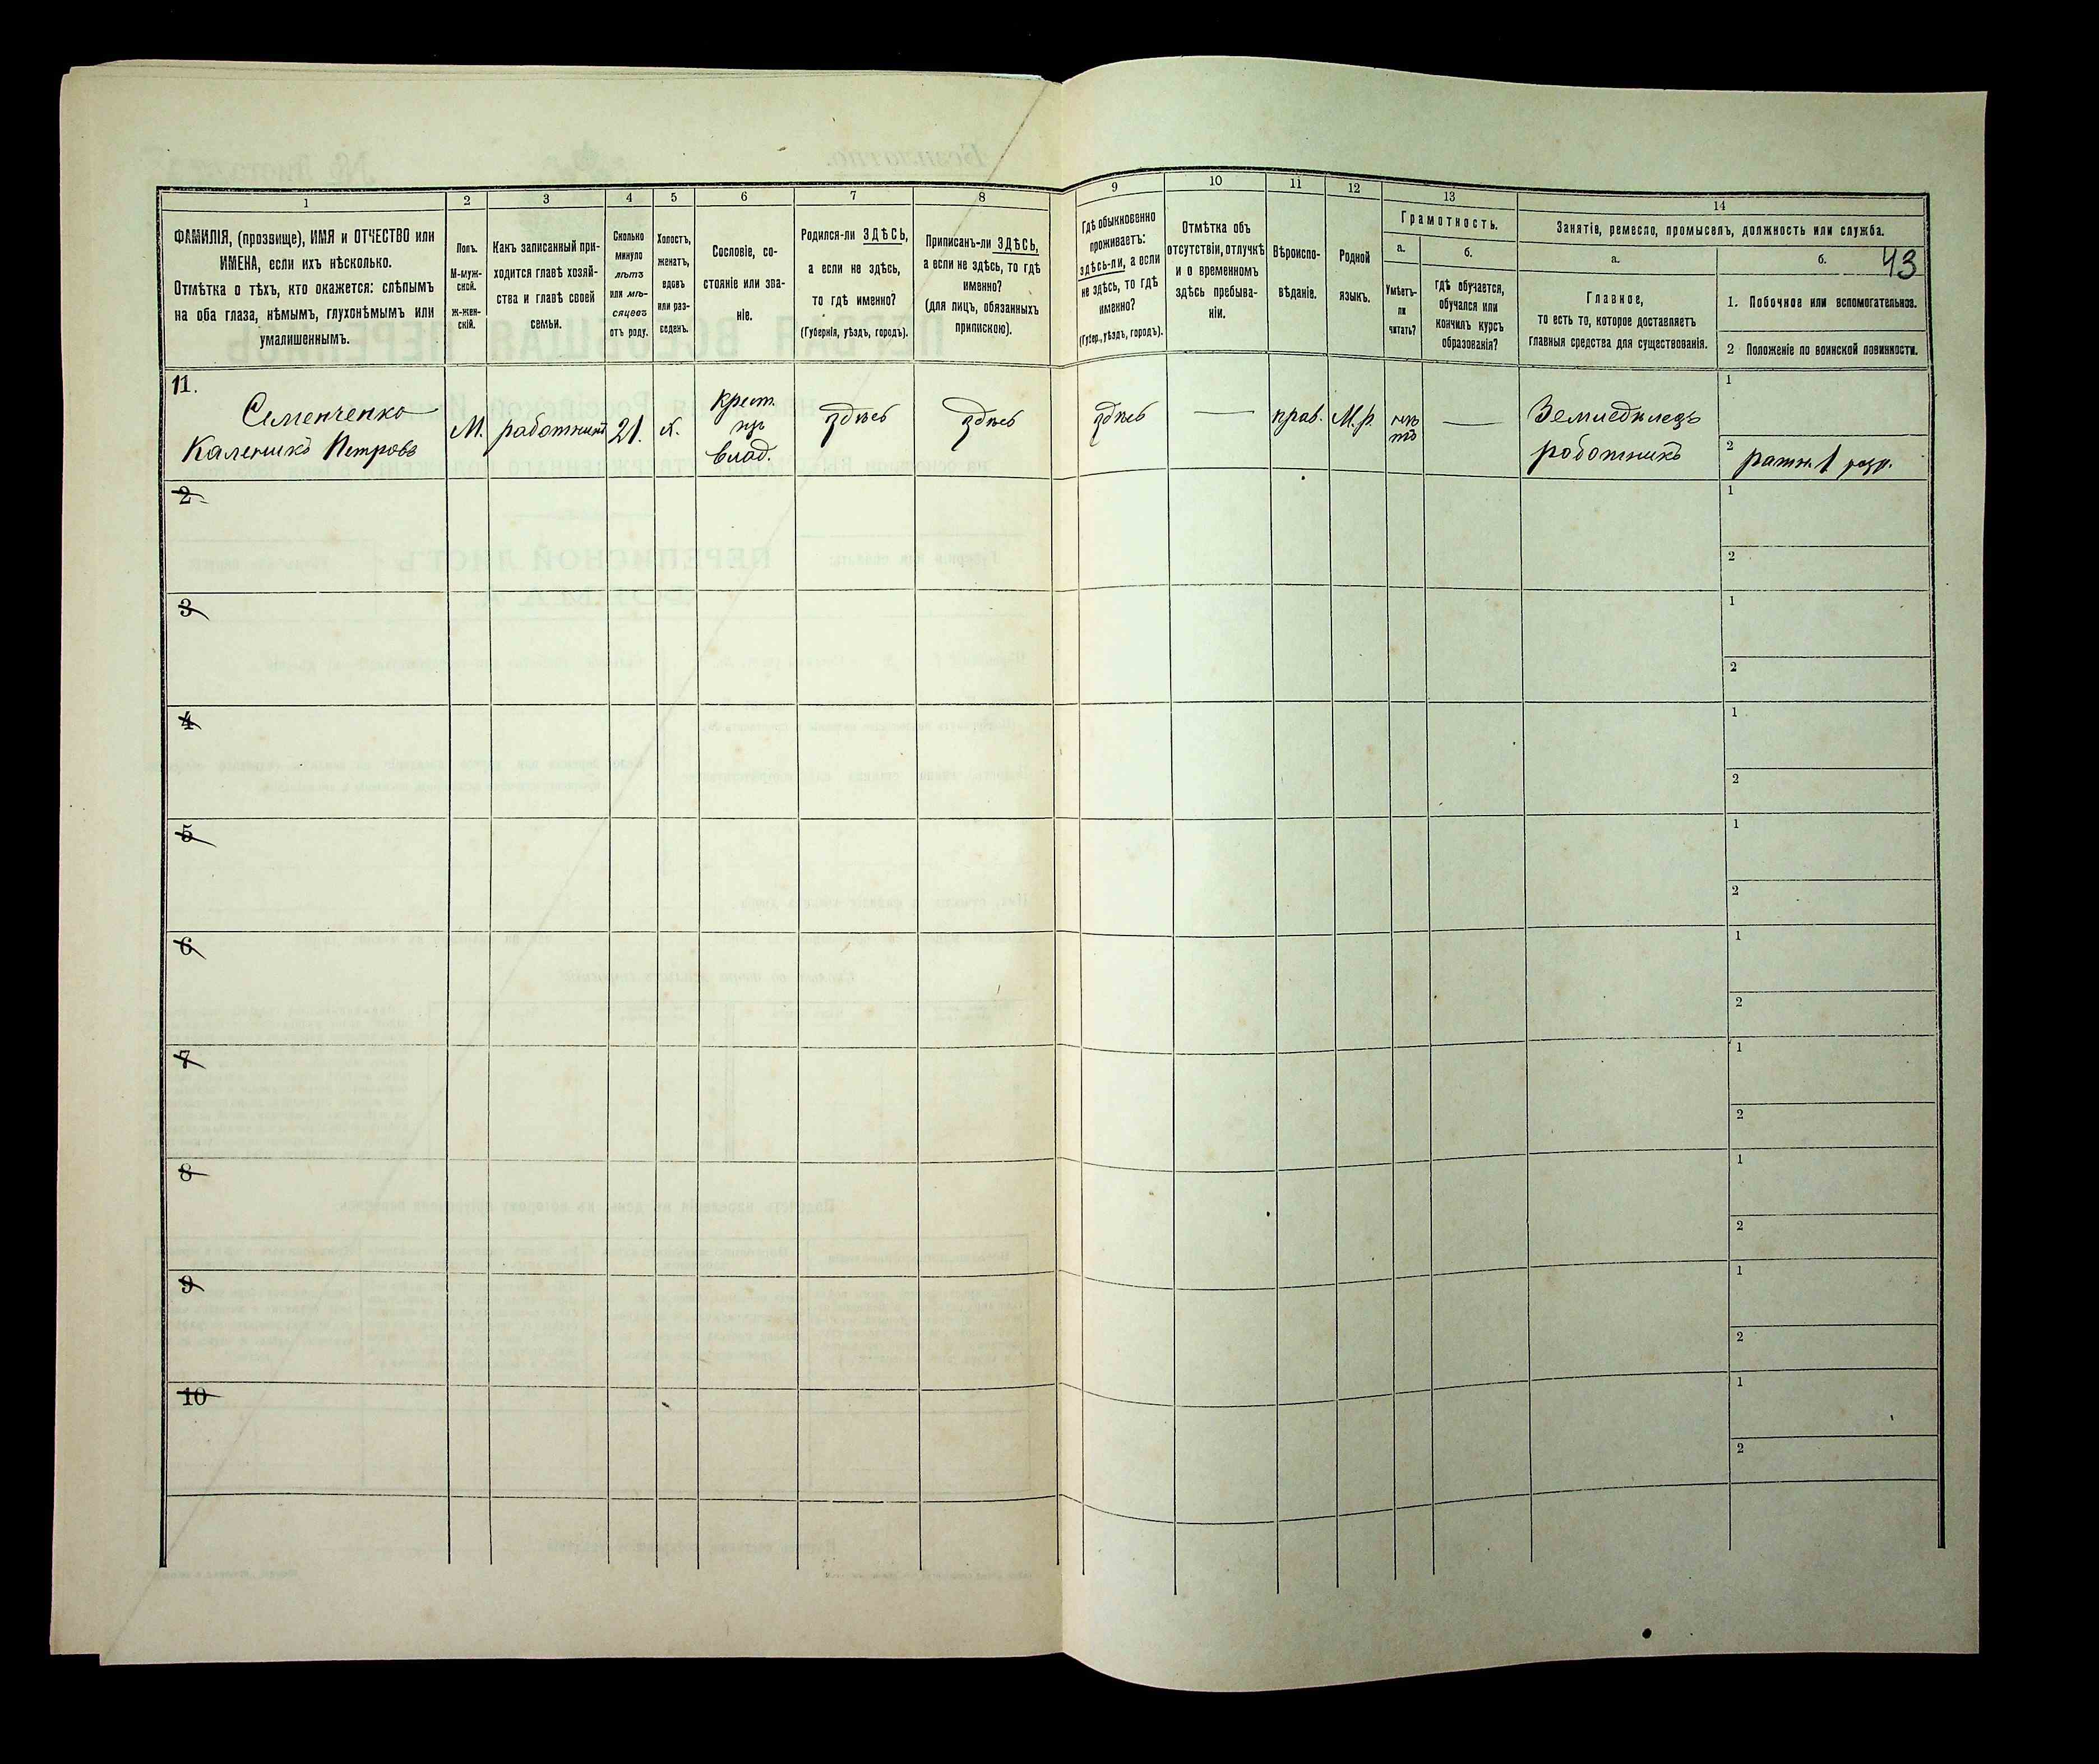 1
ФАМИЛІЯ, (прозвище), ИМЯ и ОТЧЕСТВО или
ИМЕНА, если ихъ нѣсколько.
Отмѣтка о тѣхъ, кто окажется: слѣпымъ
на оба глаза, нѣмымъ, глухонѣмымъ или
умалишеннымъ.
2
Полъ.
М-муж-
ской.
ж-жен-
скій.
3
Какъ записанный при-
ходится главѣ хозяй-
ства и главѣ своей
семьи.
4
Сколько
минуло
лѣтъ
или мѣ-
сяцевъ
отъ роду.
5
Холостъ,
женатъ,
вдовъ
или раз-
веденъ.
6
Сословіе, со-
стояніе или зва-
ніе.
7
Родился-ли ЗДѢСЬ,
а если не здѣсь,
то гдѣ именно?
(Губернія, уѣздъ, городъ).
8
Приписанъ-ли ЗДѢСЬ,
а если не здѣсь, то гдѣ
именно?
(для лицъ, обязанныхъ
припискою).
9
Гдѣ обыкновенно
проживаетъ:
здѣсь-ли, а если
не здѣсь, то гдѣ
именно?
(Губер., уѣздъ, городъ).
10
Отмѣтка объ
отсутствіи, отлучкѣ
и о временномъ
здѣсь пребыва-
ніи.
11
Вѣроиспо-
вѣданіе.
12
Родной
языкъ.
13
Грамотность.
а.
Умѣетъ-
ли
читать?
б.
гдѣ обучается,
обучался или
кончилъ курсъ
образованія?
14
Занятіе, ремесло, промыселъ, должность или служба.
а.
Главное,
то есть то, которое доставляетъ
главныя средства для существованія.
б.
43
1. Побочное или вспомогательное.
2 Положеніе по воинской повинности.
11.
Семенченко
Каленикъ Петровъ
М.
работникъ
21.
х.
крест.
изъ
влад.
здѣсь
здѣсь
здѣсь
—
прав.
М. р.
нѣ
тъ
—
Земледѣлецъ
работникъ
1
2
ратн. 1 разр.
2
1
2
3
1
2
4
1
2
5
1
2
6
1
2
7
1
2
8
1
2
9
1
2
10
1
2